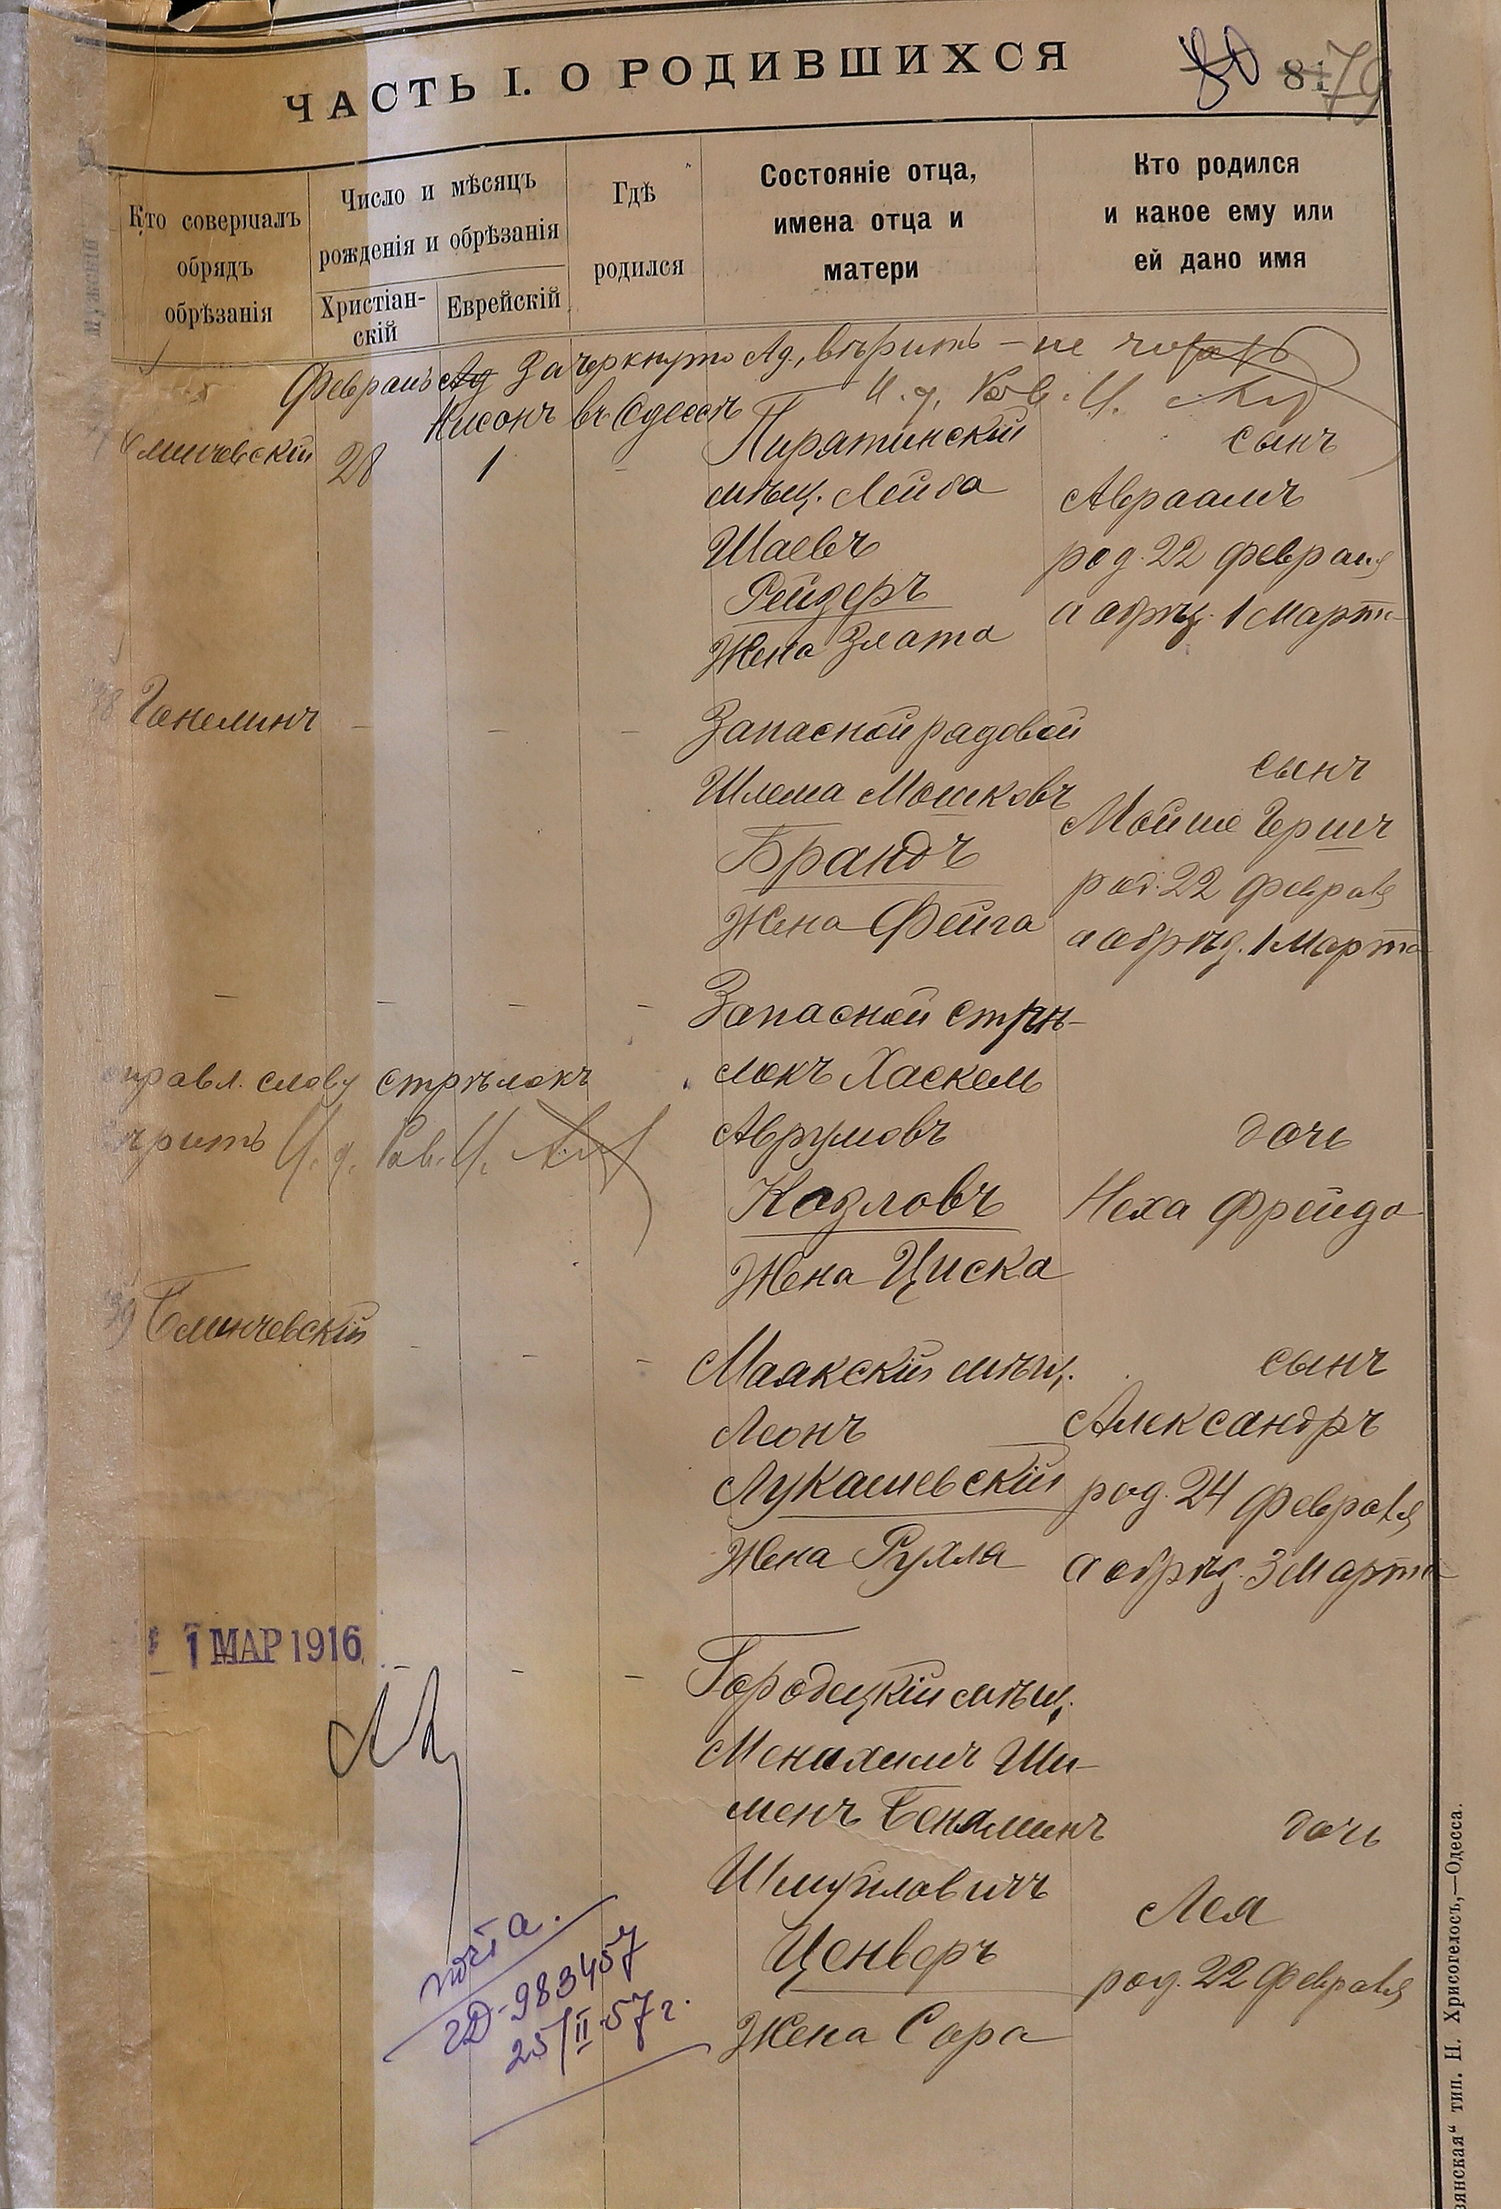 ЧАСТЬ I. О РОДИВШИХСЯ
80 81 79
Кто совершалъ
обрядъ
обрѣзанія
Число и мѣсяцъ
рожденія и обрѣзанія
Христіан-
скій
Еврейскій
Гдѣ
родился
Состояніе отца,
имена отца и
матери
Кто родился
и какое ему или
ей дано имя
Февраль Ад Зачеркнуто Ад., вѣрить —
И. д. Рав. И.
Нисонъ въ Одессѣ
28 1
Пирятинскій
мѣщ. Лейба
Шаевъ
Рейдеръ
Жена Злата
сынъ
Авраамъ
род. 22 февраля
а обрѣз. 1 Марта
Ганелинъ — — —
Запасной рядовой
Шлема Мошковъ
Брандъ
Жена Фейга
сынъ
Мойше Гершъ
род. 22 февраля
а обрѣз. 1 Марта
— — — —
Запасной стрѣ-
локъ Хаскель
Аврумовъ
Козловъ
Жена Циска
дочь
Неха Фрейда
правл. слову стрѣлокъ
ѣрить И. д. Рав. И.
Блинчевскій — — —
Маякскій мѣщ.
Леонъ
Лукашевскій
Жена Рухла
сынъ
Александръ
род. 24 февраля
а обрѣз. 3 Марта
1 МАР 1916
— — —
Городецкій мѣщ.
Менахемъ Ши-
менъ Беняминъ
Шмуйловичъ
Ценверъ
Жена Сара
дочь
Лея
род. 22 февраля
ІД-983457
25/II 57 г.
янская“ тип. Н. Хрисогелосъ,—Одесса.